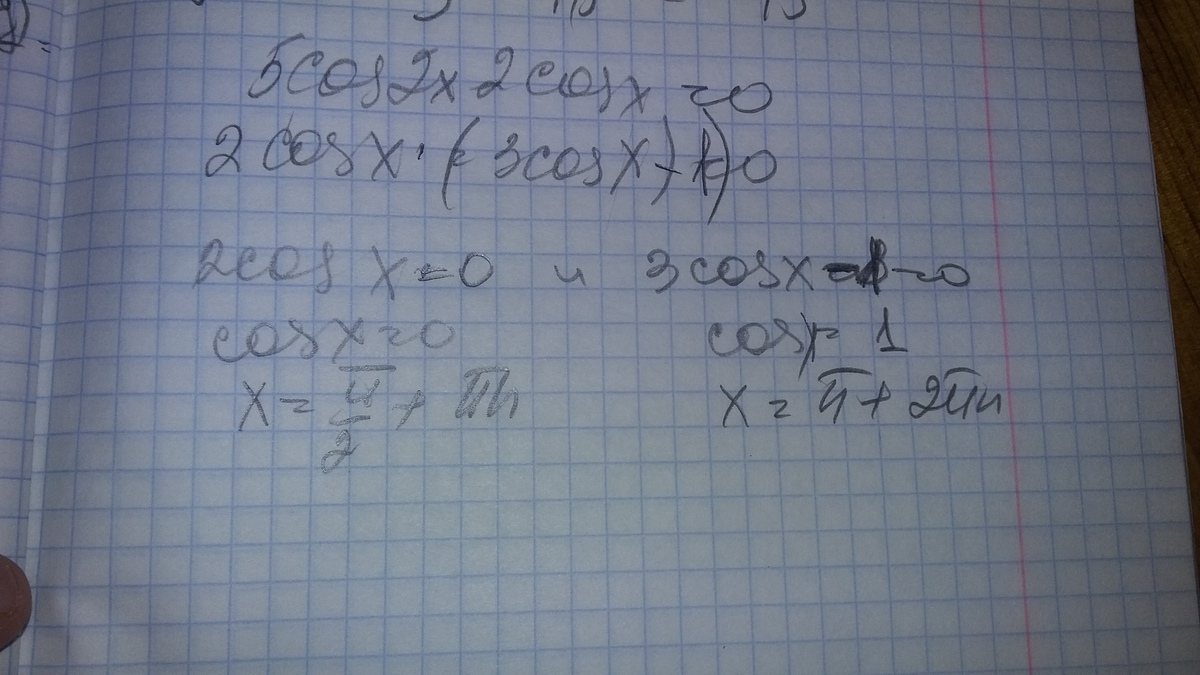 5cos2x 2cosx = 0
2cosx · (- 3cosx - 1) = 0
2cos x = 0 и 3cosx - 1 = 0
cosx = 0 cosx = 1
x = π/2 + πn x = π + 2πn